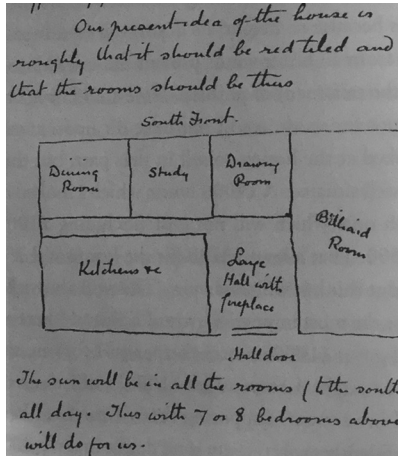 Our present idea of the house is
roughly that it should be red tiled and
that the rooms should be thus
South Front.
Dining
Room
Study
Drawing
Room
Billiard
Room
Kitchens &c
Large
Hall with
fireplace
Hall door
The sun will be in all the rooms (to the south
all day. This with 7 or 8 bedrooms above
will do for us.